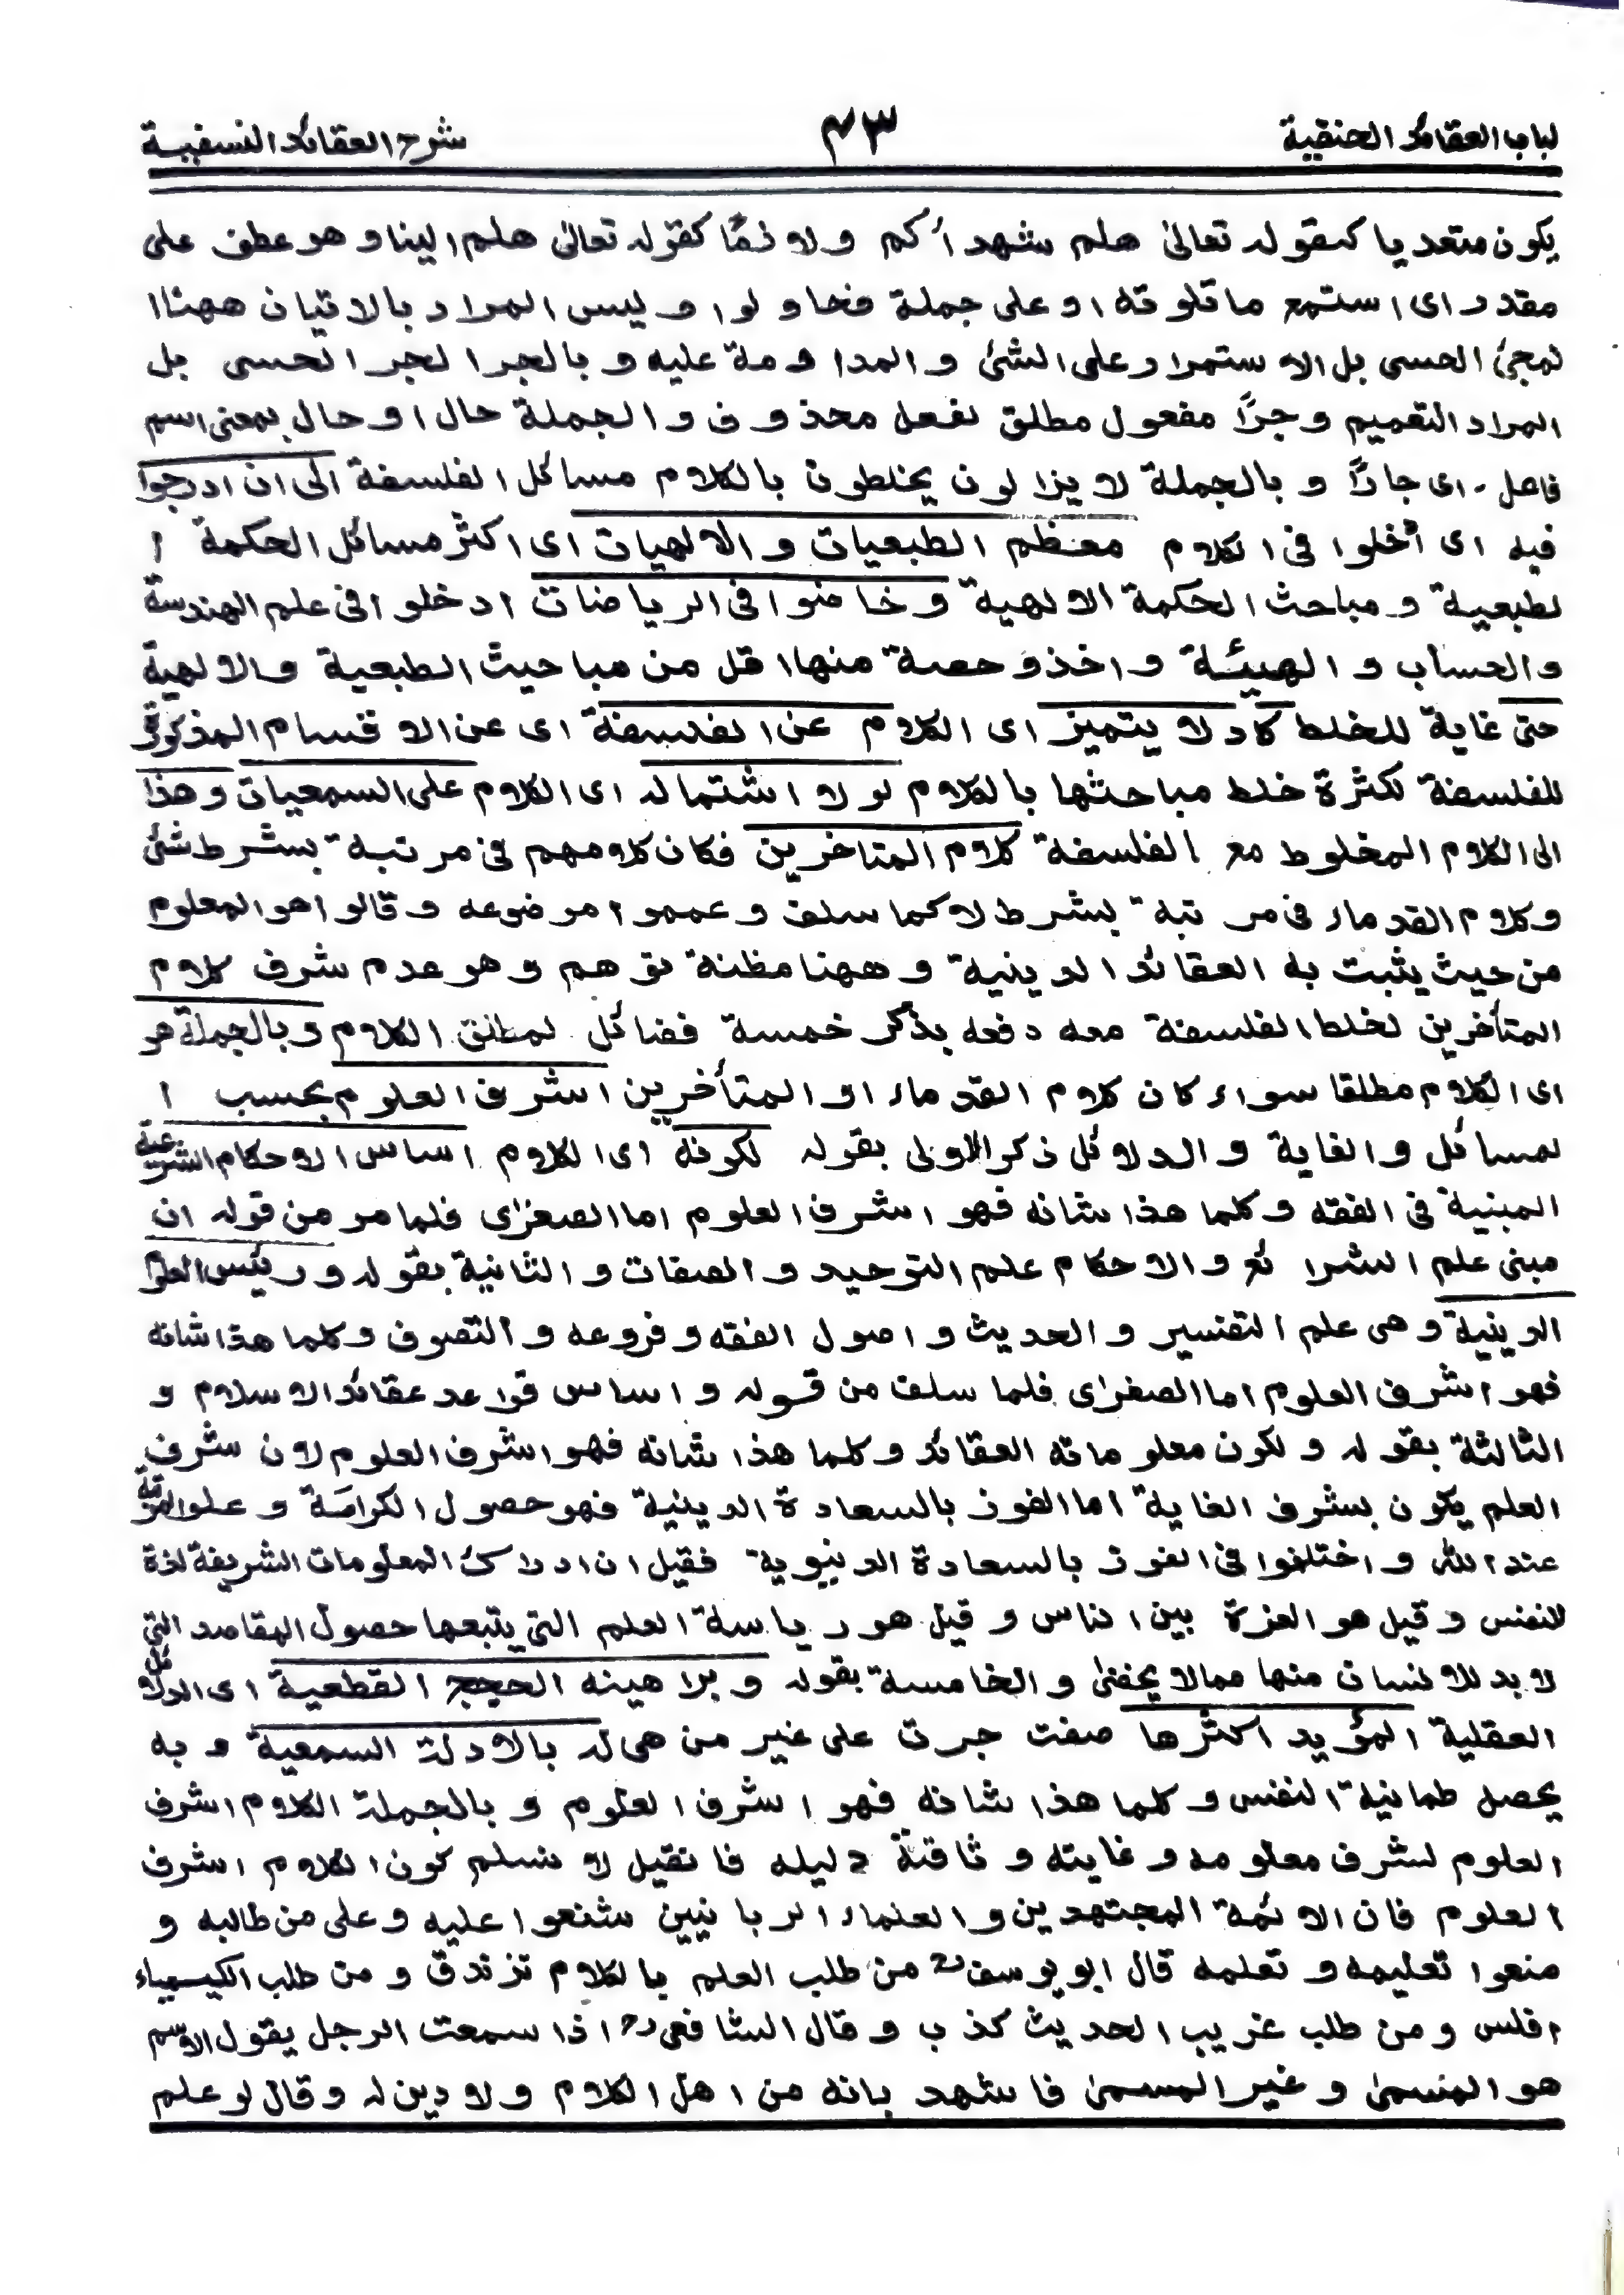 لباب العقائد الحنفية ٤٣ شرح العقائد النسفية
يكون متعديا كقوله تعالى هلم شهدأكم ولازمًا كقوله تعالى هلم الينا وهو عطف على
مقدر اى استمع ما تلوته او على جملة فحاولوا وليس المراد بالاتيان ههنا ا
لمجئ الحسى بل الاستمرار على الشئ والمداومة عليه وبالجر الجر الحسى بل
المراد التعميم وجرًّا مفعول مطلق لفعل محذوف والجملة حال او حال بمعنى اسم
فاعل - اى جارًّا وبالجملة لا يزالون يخلطون بالكلام مسائل الفلسفة الى ان ادرجوا
فيه اى أدخلوا فى الكلام معظم الطبعيات والالهيات اى اكثر مسائل الحكمة ا
لطبعية ومباحث الحكمة الالهية وخاضوا فى الرياضات ادخلوا فى علم الهندسة
والحساب والهيئة واخذو حصة منها اقل من مباحيث الطبعية والالهية
حتى غاية للخلط كاد لا يتميز اى الكلام عن الفلسفة اى عن الاقسام المذكورة
للفلسفة لكثرة خلط مباحثها بالكلام لولا اشتماله اى الكلام على السمعيات وهذا
الى الكلام المخلوط مع الفلسفة كلام المتاخرين فكان كلامهم فى مرتبة بشرط شئ
وكلام القدماء فى مرتبة بشرط لا كما سلف وعمموا موضوعه وقالوا هو المعلوم
من حيث يثبت به العقائد الدينية وههنا مظنة توهم وهو عدم شرف كلام
المتأخرين لخلط الفلسفة معه دفعه بذكر خمسة فضائل لمطلق الكلام وبالجملة هو
اى الكلام مطلقا سواء كان كلام القدماء او المتأخرين اشرف العلوم بحسب ا
لمسائل والغاية والدلائل ذكر الاولى بقوله لكونه اى الكلام اساس الاحكام الشرعية
المبنية فى الفقه وكلما هذا شانه فهو اشرف العلوم اما الصغرٰى فلما مر من قوله ان
مبنى علم الشرائع والاحكام علم التوحيد والصفات والثانية بقوله ورئيس العلوم
الدينية وهى علم التفسير والحديث واصول الفقه وفروعه والتصوف وكلما هذا شانه
فهو اشرف العلوم اما الصغرٰى فلما سلف من قوله واساس قواعد عقائد الاسلام و
الثالثة بقوله ولكون معلوماته العقائد وكلما هذا شانه فهو اشرف العلوم لان شرف
العلم يكون بشرف الغاية اما الفوز بالسعادة الدينية فهو حصول الكرامة وعلو المرتبة
عند الله واختلفوا فى الفوز بالسعادة الدنيوية فقيل ان ادراك المعلومات الشريفة لذة
للنفس وقيل هو العزة بين الناس وقيل هو رياسة العلم التى يتبعها حصول المقاصد التى
لا بد للانسان منها ممالا يخفىٰ والخامسة بقوله وبراهينه الحجج القطعية اى الدلائل
العقلية المؤيد اكثرها صفت جرت على غير من هى له بالادلة السمعية وبه
يحصل طمانية النفس وكلما هذا شانه فهو اشرف العلوم وبالجملة الكلام اشرف
العلوم لشرف معلومه وغايته وثاقتة دليله فانقيل لا نسلم كون الكلام اشرف
العلوم فان الائمة المجتهدين والعلماء الربانيين شنعوا عليه وعلى من طالبه و
منعوا تعليمه وتعلمه قال ابو يوسفؒ من طلب العلم بالكلام تزندق ومن طلب الكيمياء
افلس ومن طلب غريب الحديث كذب وقال الشافعىؒ اذا سمعت الرجل يقول الاسم
هو المسمىٰ وغير المسمىٰ فاشهد بانه من اهل الكلام ولا دين له وقال لو علم